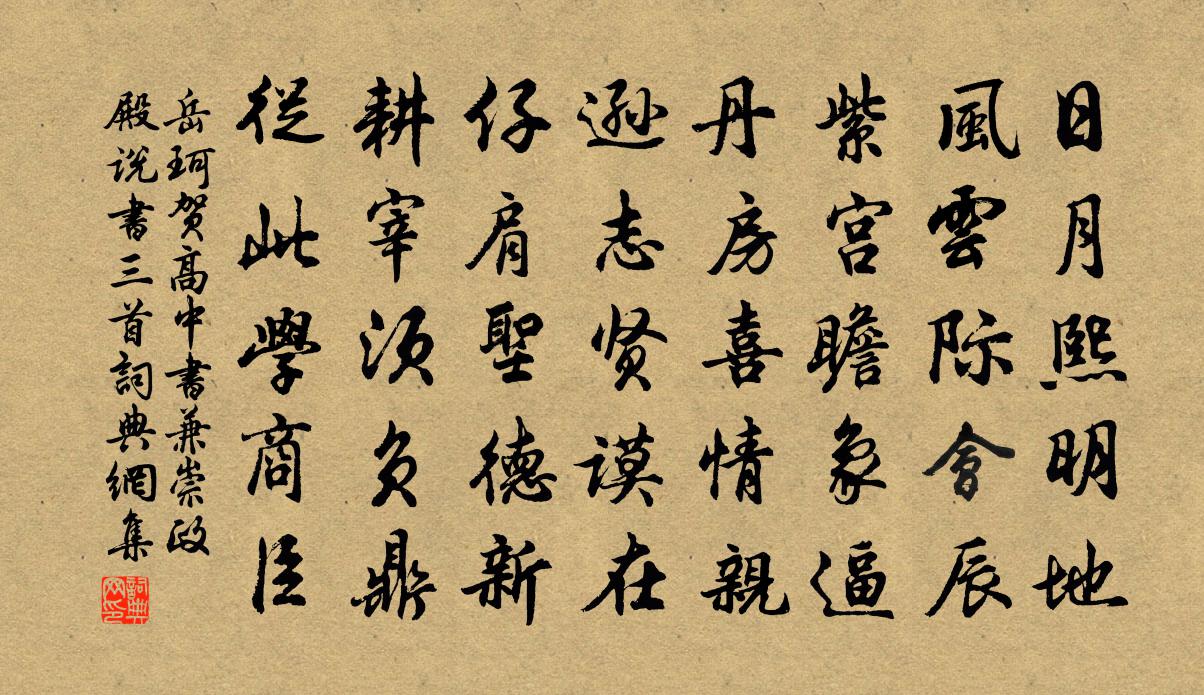 日月熙明地
風雲际會辰
紫宫瞻象逼
丹房喜情親
遜志贤谟在
仔肩聖德新
耕宰须负鼎
從此學商臣
岳珂贺高中書兼崇政
殿说書三首詞典網集